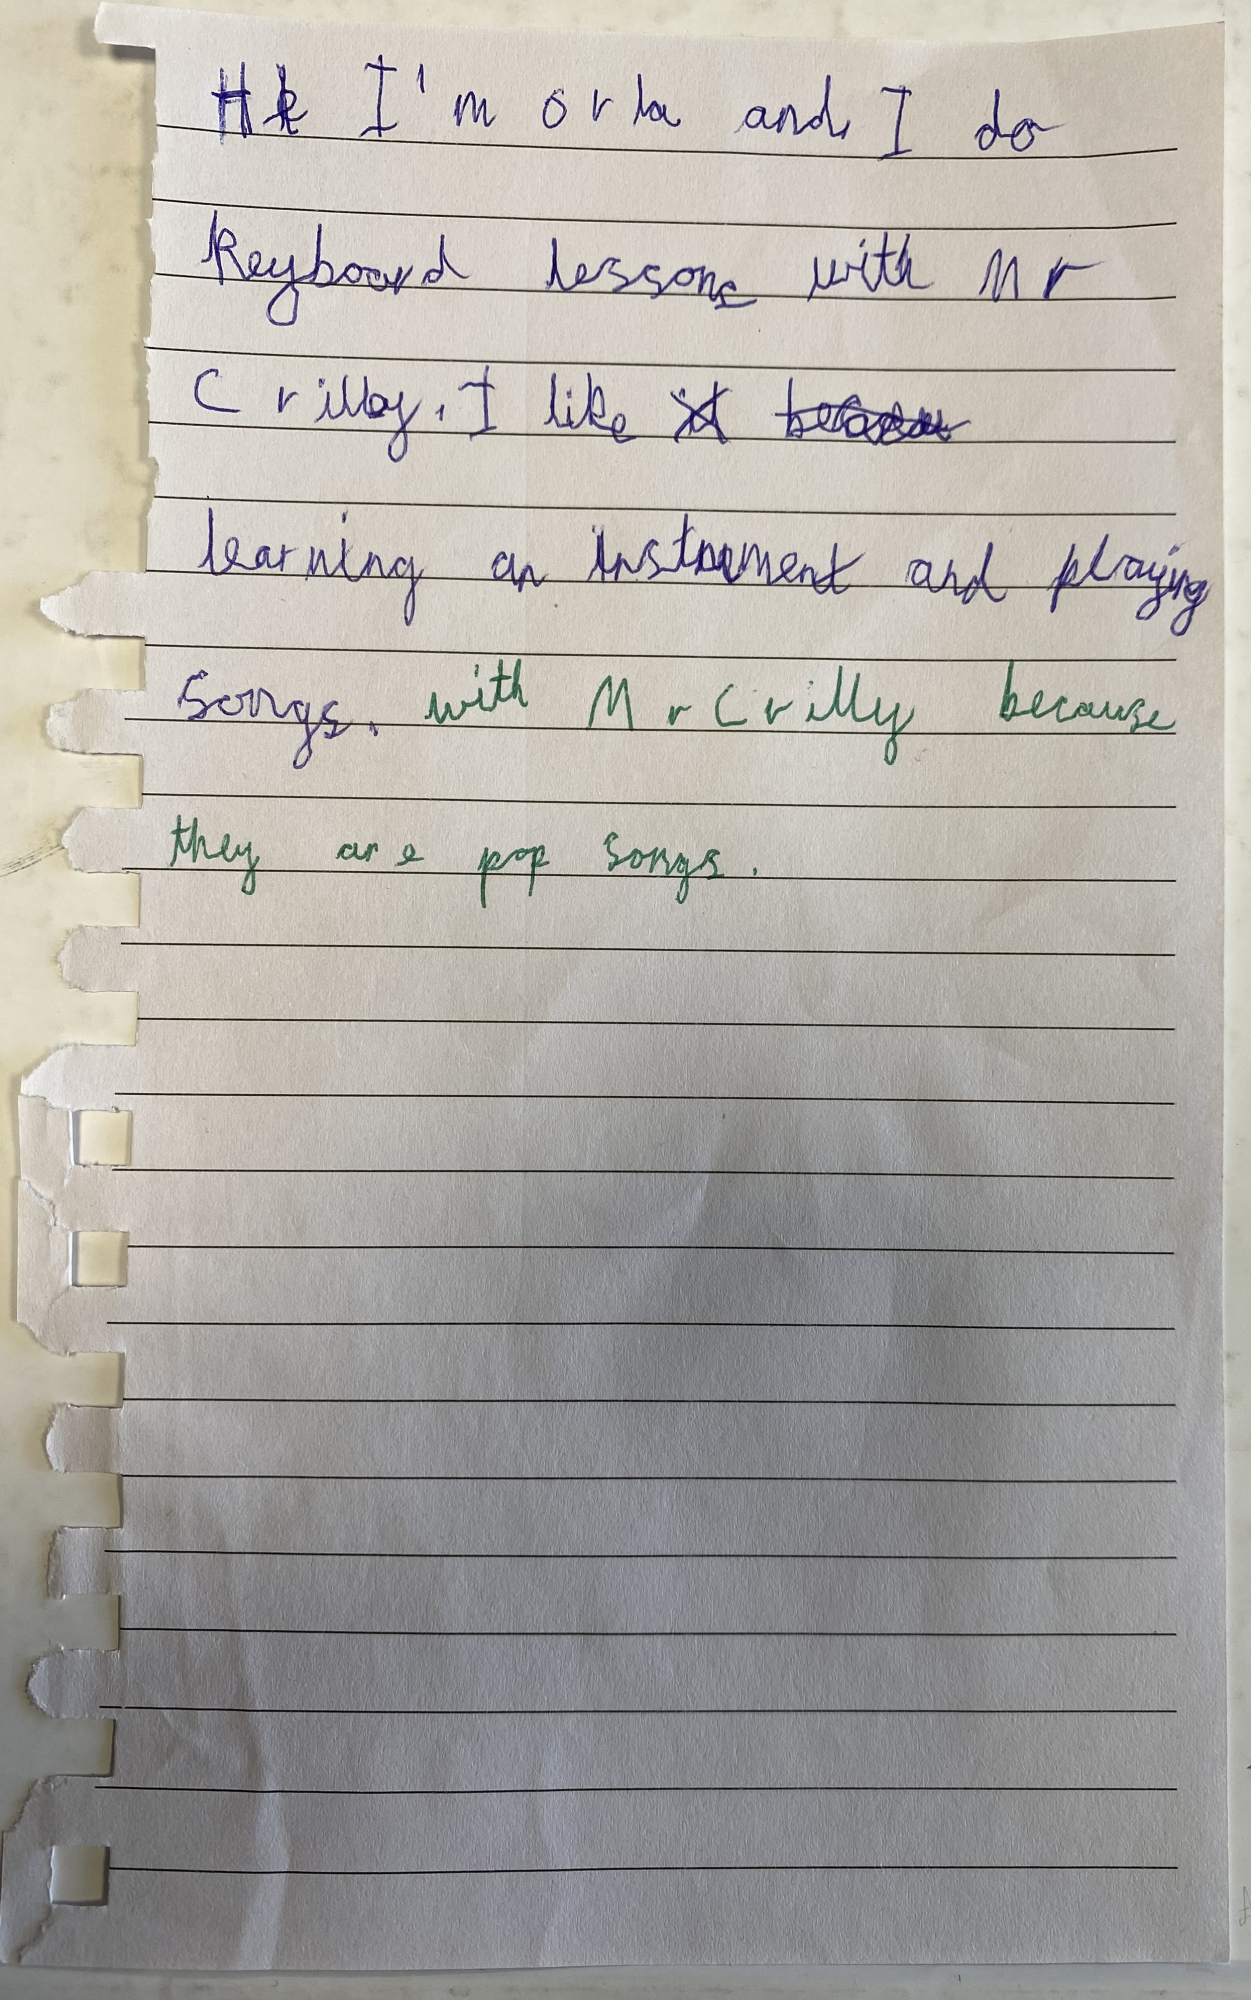 Hi I'm orla and I do
Keyboard lessons with Mr
Crilly. I like it
learning an instrument and playing
songs. with Mr Crilly because
they are pop songs.